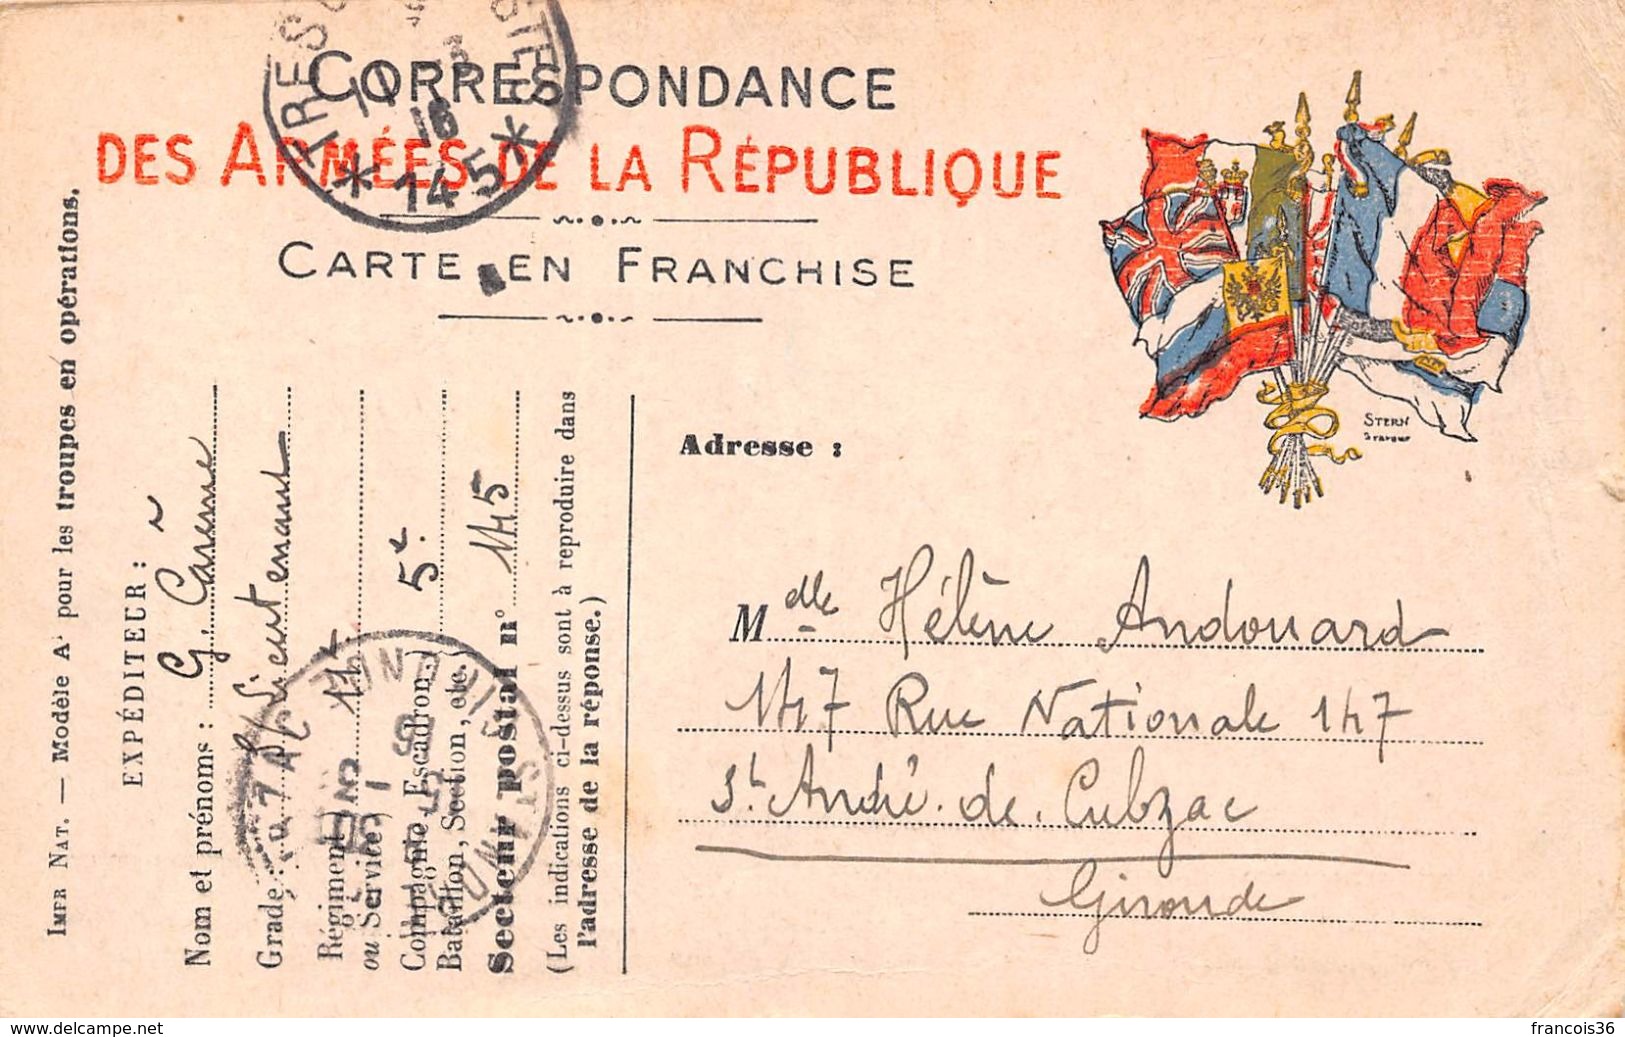 CORRESPONDANCE
DES ARMÉES DE LA RÉPUBLIQUE
CARTE EN FRANCHISE
TRES
* 145 *
16
STERN
Graveur
IMPR NAT. — Modèle A¹ pour les troupes en opérations.
EXPÉDITEUR :
Nom et prénoms : G. Careme
Grade : S/Lieutenant
Régiment 14e
ou Service)
Compagnie, Escadron, 5e
Bataillon, Section, etc.
Secteur postal n° 145
(Les indications ci-dessus sont à reproduire dans
l'adresse de la réponse.)
Adresse :
Mdlle Hélène Andouard
147 Rue Nationale 147
St André. de. Cubzac
Gironde
www.delcampe.net
francois36